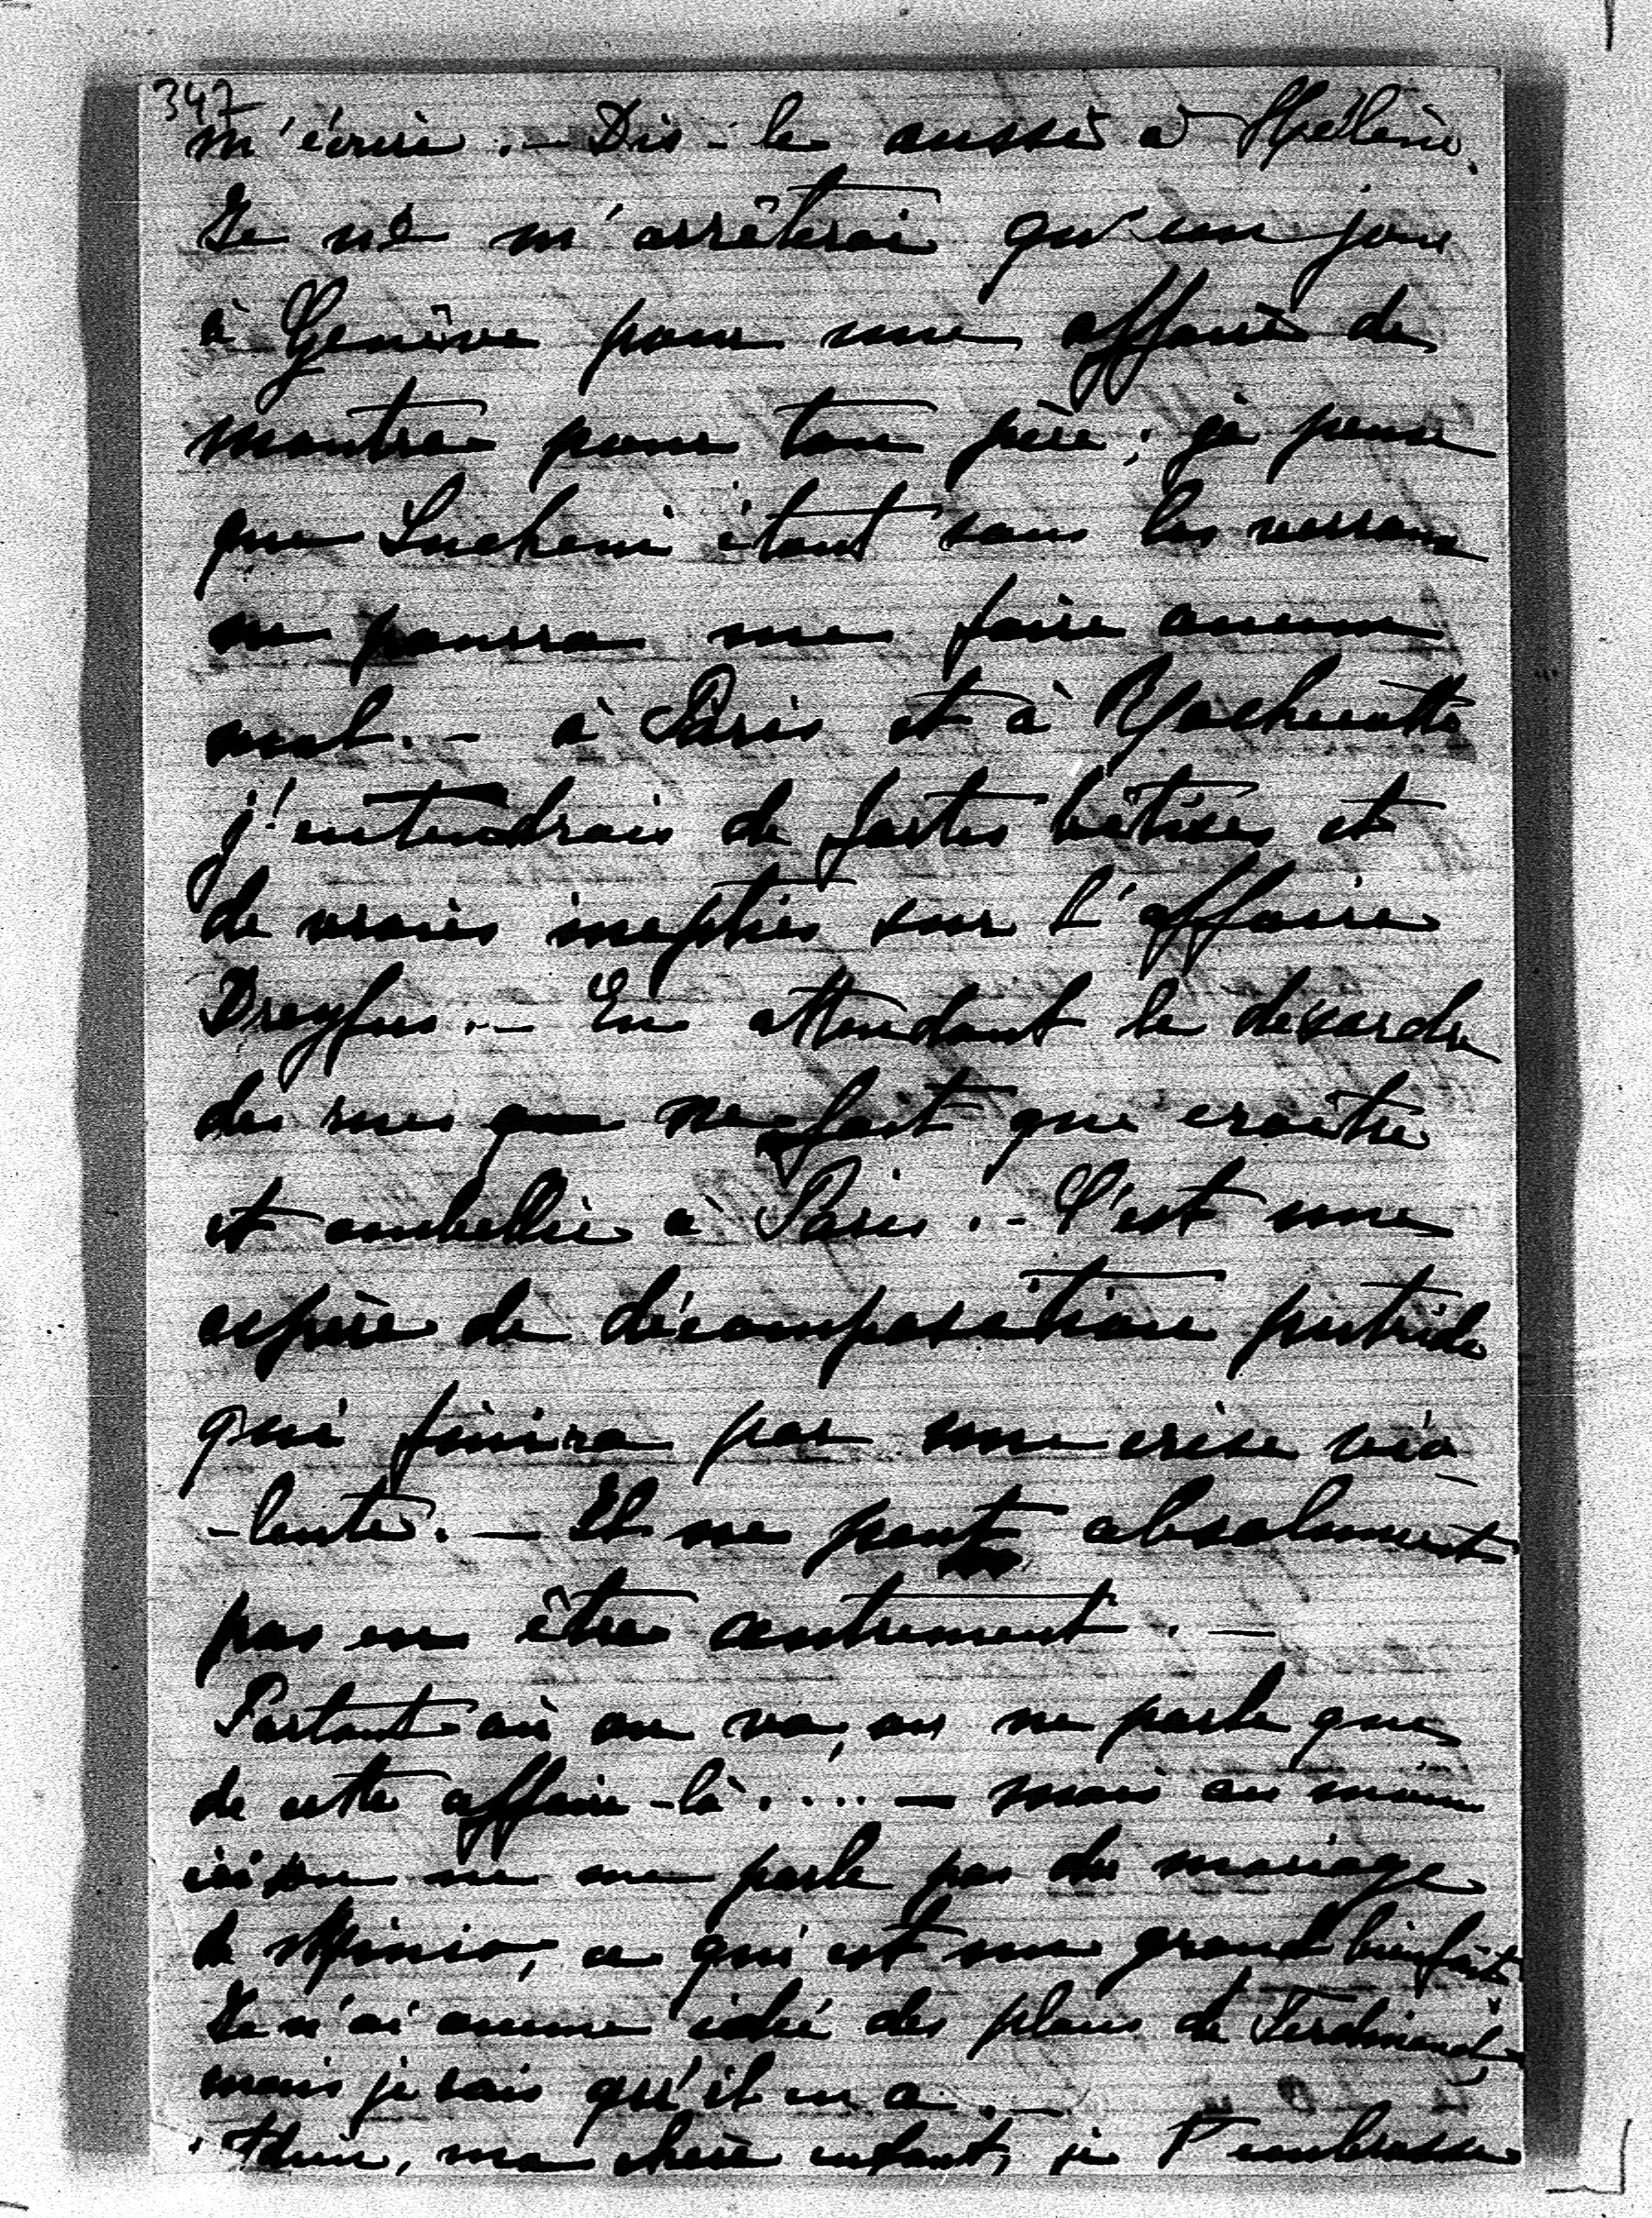 347
m'écrire. – Dis-le aussi à Hélène.
Je ne m'arrêterai qu'un jour
à Genève pour une affaire de
montre pour ton père; je pense
que Lucheni étant sous les verroux
ne pourra me faire aucun
mal. – à Paris et à
j'entendrais de fortes bêtises et
de vraies inepties sur l'affaire
Dreyfus. – En attendant le désordre
des rues ne fait que croître
et embellir à Paris. – C'est une
espèce de décomposition putride
qui finira par une crise vio
-lente. – Il ne peut absolument
pas en être autrement. –
Partout où on va, on ne parle que
de cette affaire-là .... – mais au moins
ici on ne me parle pas du mariage
de Minio, ce qui est un grand bienfait.
Je n'ai aucune idée des plans de Ferdinand,
mais je sais qu'il en a. –
Adieu, ma chère enfant, je t'embrasse